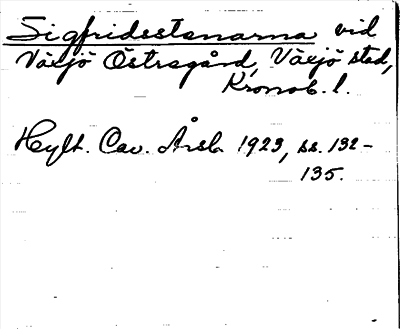 Sigfridsstenarna vid
Växjö Östregård, Växjö stad,
Kronob. l.
Hylt. Cav. Årsb. 1923, ss. 132-
135.